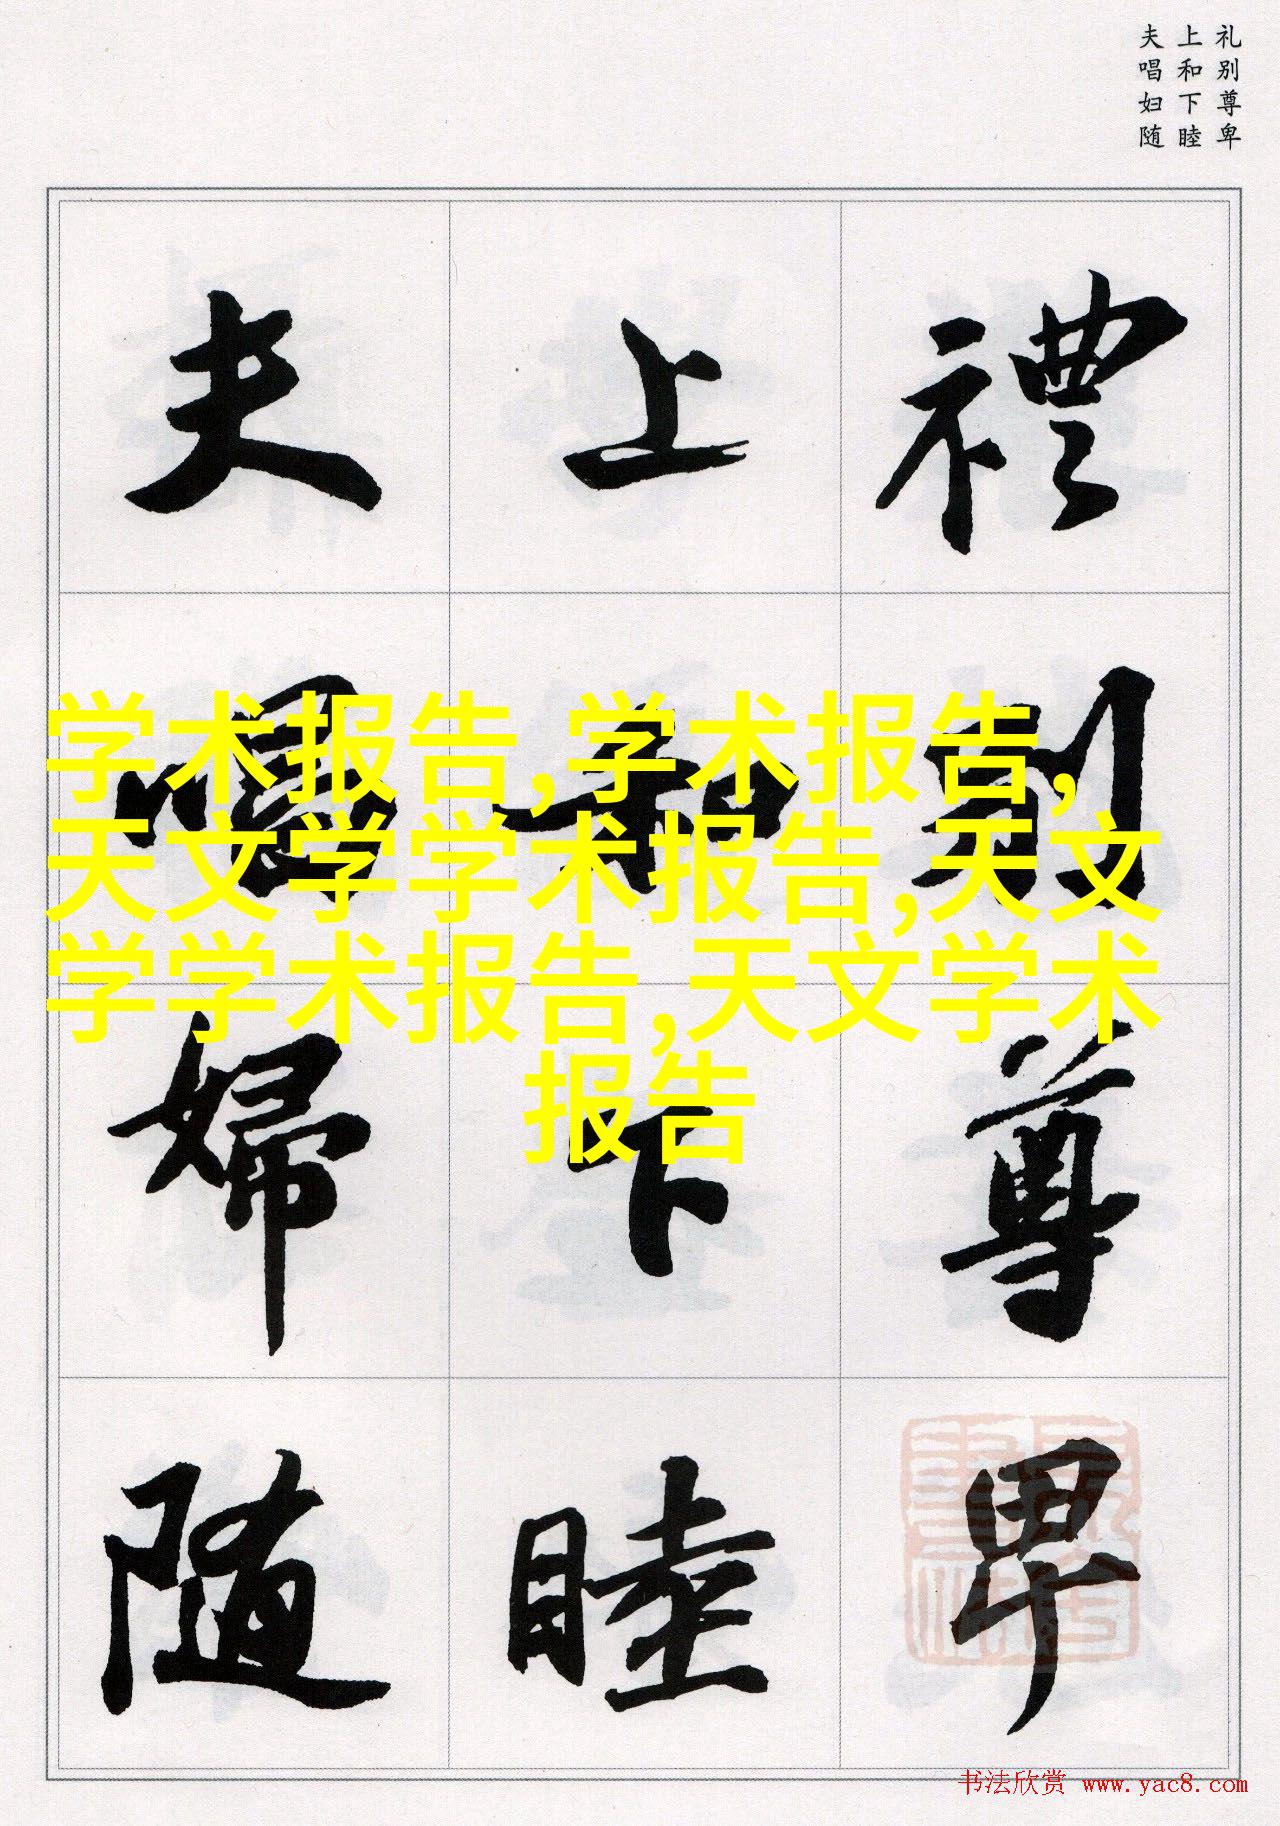 礼别尊卑
上和下睦
夫唱妇随
禮別尊卑
上和下睦
夫唱婦随
学术报告,学术报告,
天文学学术报告,天文
学学术报告,天文学术
报告
书法欣赏 www.yac8.com